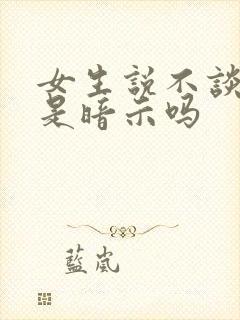 女生説不談
是暗示吗
藍嵐